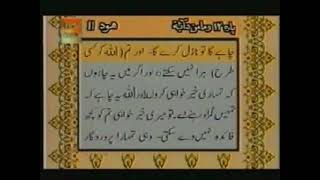 پارہ ۱۲ وما من دآبۃ ھود ۱۱
چاہے گا تو نازل کرے گا۔ اور تم (اللہ کو کسی
طرح) ہرا نہیں سکتے ○ اور اگر میں یہ چاہوں
کہ تمہاری خیر خواہی کروں اور اللہ یہ چاہے
تمہیں گمراہ رہنے دے تو میری خیر خواہی تم کو کچھ
فائدہ نہیں دے سکتی۔ وہی تمہارا پروردگار